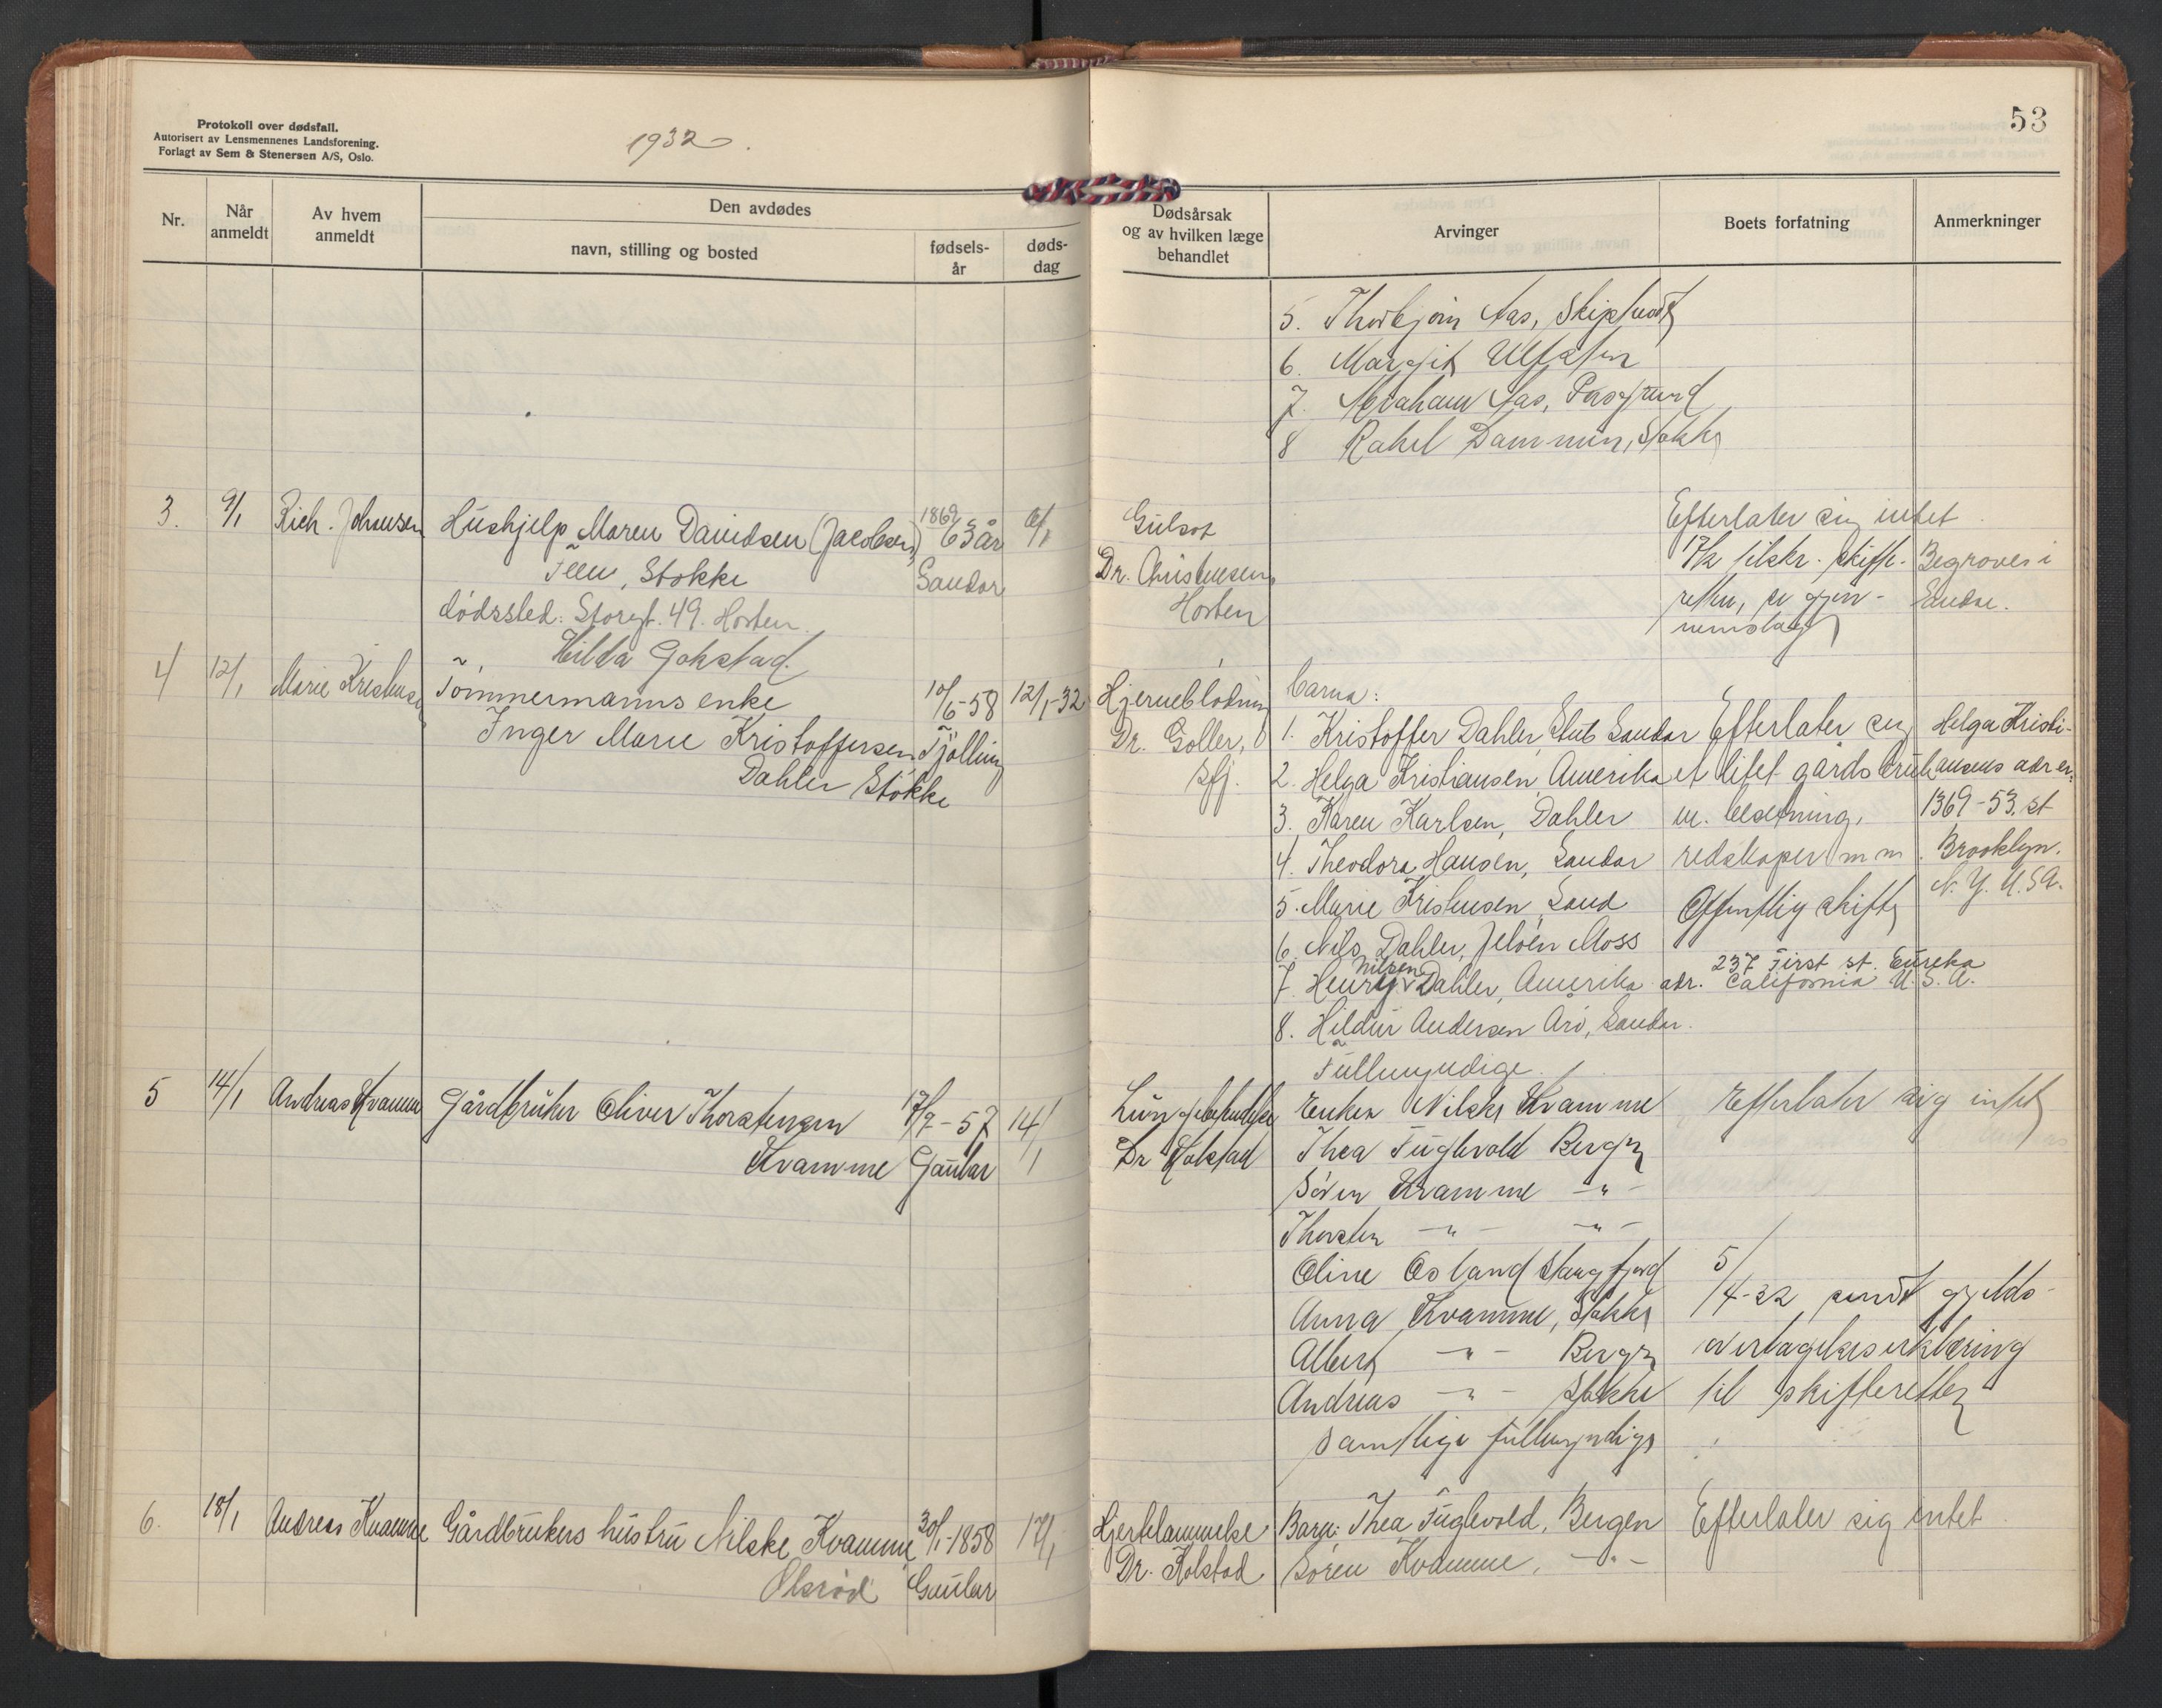 Protokoll over dødsfall.
Autorisert av Lensmennenes Landsforening.
Forlagt av Sem & Stenersen A/S, Oslo.
1932.
53
Nr.
Når anmeldt
Av hvem anmeldt
Den avdødes
navn, stilling og bosted
fødsels-år
døds-dag
Dødsårsak og av hvilken læge behandlet
Arvinger
Boets forfatning
Anmerkninger
5. Thorbjørn Aas,
6. Margit Ulfsten
7. Abraham Aas, Porsgrund
8 Rakel Dammen, Stokke
3. 9/1 Rich. Johansen Hushjelp Maren Davidsen (Jacobsen) 1869 63 år
Feen, Stokke Sandar
dødssted: Storegt. 49. Horten.
Hilda Gokstad.
Gulsot
Dr. Christensen
Horten
Efterlater sig intet
17/2 tilskr. skifte-
retten, se gjen-
nemslag
Begraves i
Sandar.
4 12/1 Marie Kristensen Tømmermanns enke 10/6-58 12/1-32
Inger Marie Kristoffersen Tjølling
Dahler Stokke
Hjerneblødning
Dr. Goller,
Sfj.
barna:
1. Kristoffer Dahler, Stub Sandar
2. Helga Kristiansen, Amerika
3. Karen Karlsen, Dahler
4. Theodora Hansen, Sandar
5. Marie Kristensen, Sand
6. Nils Dahler, Jeløen Moss
7. Henry Nilsen Dahler, Amerika adr. 237 First st. Eureka
California U.S.A.
8. Hildur Andersen Arø, Sandar.
Fullmyndige.
Efterlater sig
et litet gårdsbruk
m. besetning,
redskaper m m.
Offentlig skifte
Helga Kristi-
ansens adr er:
1369-53. st
Brooklyn.
N.Y. U.S.A.
5 14/1 Andreas Kvamme Gårdbruker Oliver Thorstensen 17/7-57 14/1
Kvamme Gaular
Lungebetendelse
Dr Kolstad
Enken Nilske Kvamme
Thea Fuglevold Bergen
Søren Kvamme -"-
Thorsten -"- -"-
Oline Osland Stangfjord
Anna Kvamme, Stokke
Albert -"- Bergen
Andreas -"- Stokke
samtlige fullmyndige
Efterlater sig intet
5/4-32 sendt gjelds-
overtagelseserklæring
til skifteretten
6. 18/1 Andreas Kvamme Gårdbrukers hustru Nilske Kvamme 30/1-1858 17/1
Olsrød Gaular
Hjertelammelse
Dr. Kolstad
Barn: Thea Fuglevold, Bergen
Søren Kvamme, -"-
Efterlater sig intet